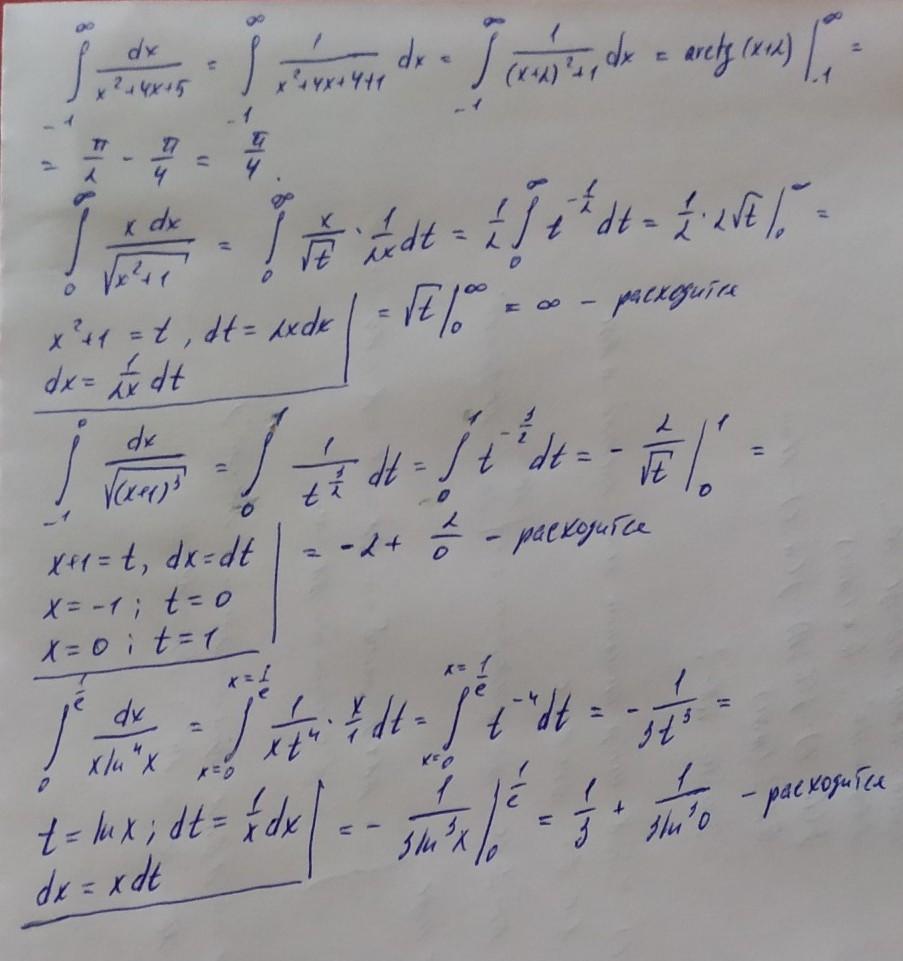 ∫_{-1}^{∞} dx/(x²+4x+5) = ∫_{-1}^{∞} 1/(x²+4x+4+1) dx = ∫_{-1}^{∞} 1/((x+2)²+1) dx = arctg(x+2) |_{-1}^{∞} =
= π/2 - π/4 = π/4.
∫_{0}^{∞} x dx/√(x²+1) = ∫_{0}^{∞} x/√t · 1/2x dt = 1/2 ∫_{0}^{∞} t^{-1/2} dt = 1/2 · 2√t |_{0}^{∞} =
x²+1 = t, dt = 2xdx
dx = 1/2x dt
= √t |_{0}^{∞} = ∞ - расходится
∫_{-1}^{0} dx/√((x+1)³) = ∫_{0}^{1} 1/t^{3/2} dt = ∫_{0}^{1} t^{-3/2} dt = - 2/√t |_{0}^{1} =
x+1 = t, dx = dt
x = -1; t = 0
x = 0; t = 1
= -2 + 2/0 - расходится
∫_{0}^{1/e} dx/(x ln⁴x) = ∫_{x=0}^{x=1/e} 1/(xt⁴) · x/1 dt = ∫_{x=0}^{x=1/e} t^{-4} dt = - 1/(3t³) =
t = lnx; dt = 1/x dx
dx = x dt
= - 1/(3ln³x) |_{0}^{1/e} = 1/3 + 1/(3ln³0) - расходится